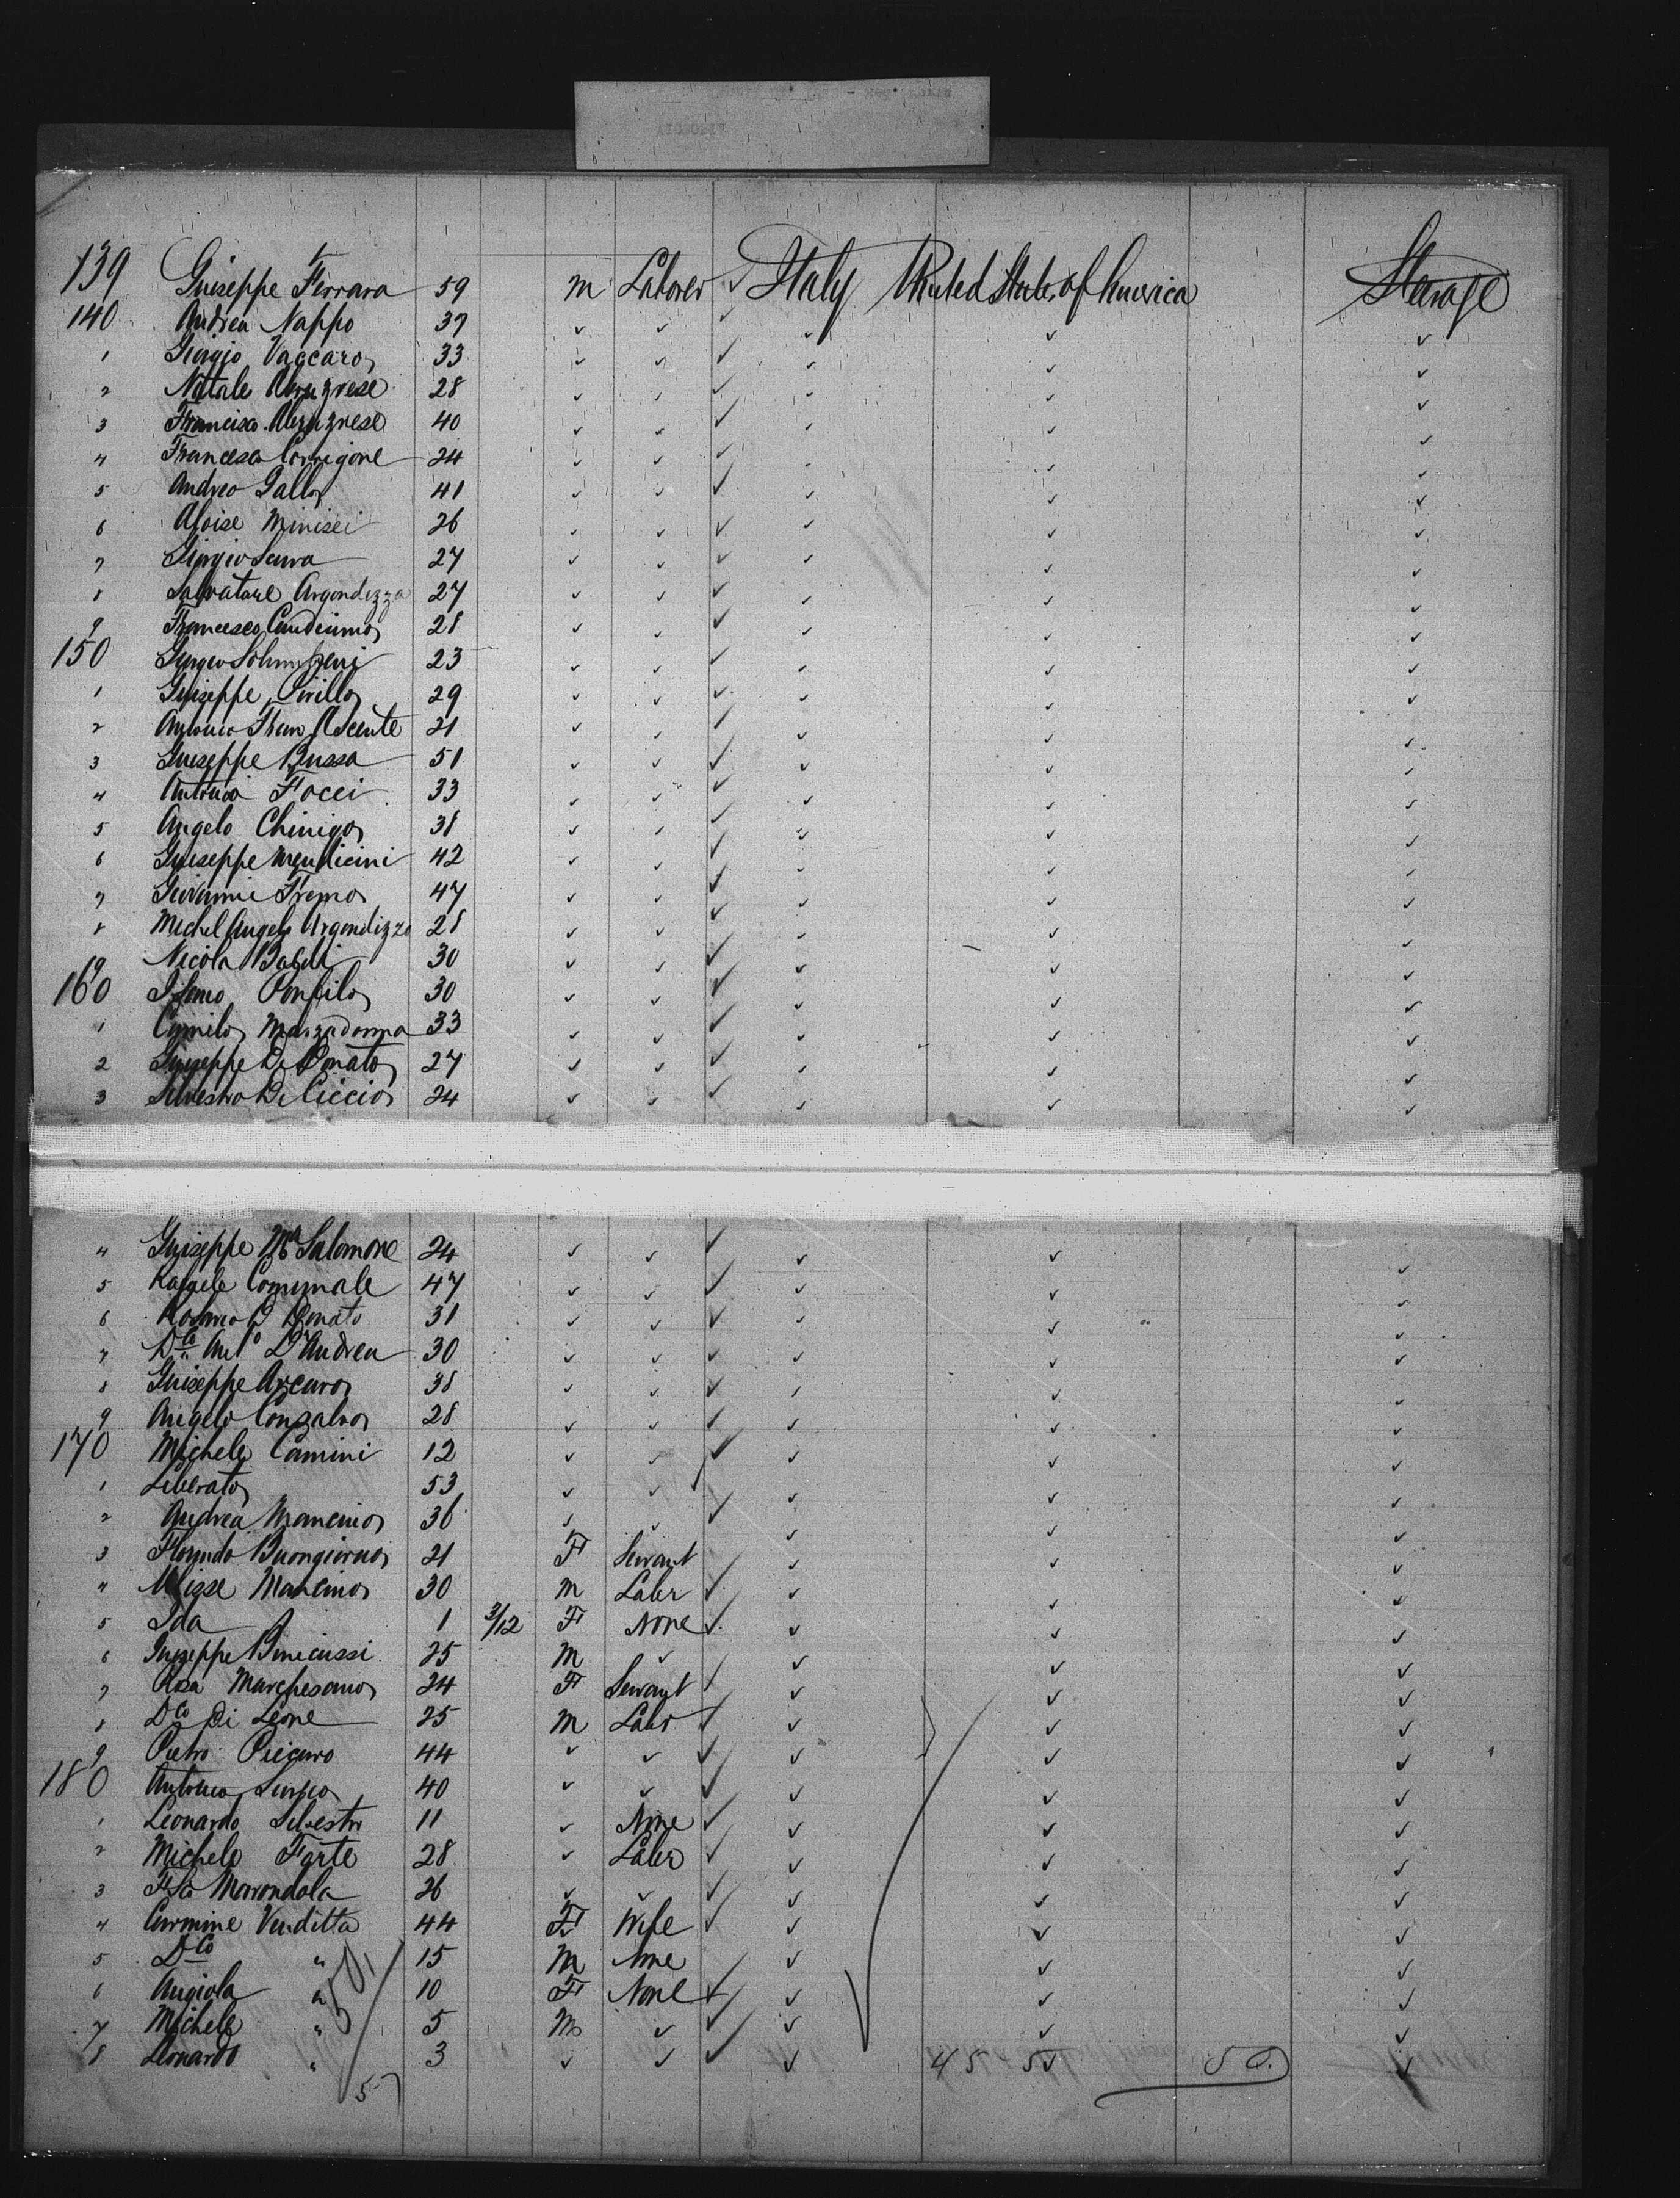 139 Giuseppe Ferrara 59 m Laborer ✓ Italy United States of America Steerage
140 Andrea Nappo 37 ✓ ✓ ✓ ✓ ✓ ✓
1 Giorgio Vaccaro 33 ✓ ✓ ✓ ✓ ✓ ✓
2 Natale Abruzzese 28 ✓ ✓ ✓ ✓ ✓ ✓
3 Francisco Abruzzese 40 ✓ ✓ ✓ ✓ ✓ ✓
4 Francesco Corrigone 24 ✓ ✓ ✓ ✓ ✓ ✓
5 Andreo Gallo 41 ✓ ✓ ✓ ✓ ✓ ✓
6 Aloise Minisei 26 ✓ ✓ ✓ ✓ ✓ ✓
7 Giorgio 27 ✓ ✓ ✓ ✓ ✓ ✓
8 Salvatore Argondizza 27 ✓ ✓ ✓ ✓ ✓ ✓
9 Francesco 28 ✓ ✓ ✓ ✓ ✓ ✓
150 23 ✓ ✓ ✓ ✓ ✓ ✓
1 Giuseppe Pirillo 29 ✓ ✓ ✓ ✓ ✓ ✓
2 Antonio 21 ✓ ✓ ✓ ✓ ✓ ✓
3 Giuseppe Bussa 51 ✓ ✓ ✓ ✓ ✓ ✓
4 Antonio Focci 33 ✓ ✓ ✓ ✓ ✓ ✓
5 Angelo Chinigo 38 ✓ ✓ ✓ ✓ ✓ ✓
6 Giuseppe Mendicini 42 ✓ ✓ ✓ ✓ ✓ ✓
7 Giovannie Fremo 47 ✓ ✓ ✓ ✓ ✓ ✓
8 Michel Angelo Argondizzo 28 ✓ ✓ ✓ ✓ ✓ ✓
9 Nicola 30 ✓ ✓ ✓ ✓ ✓ ✓
160 Ponfilo 30 ✓ ✓ ✓ ✓ ✓ ✓
1 Camilo Mazzadonna 33 ✓ ✓ ✓ ✓ ✓ ✓
2 Giuseppe Di Donato 27 ✓ ✓ ✓ ✓ ✓ ✓
3 Silvestro Di Ciccio 24 ✓ ✓ ✓ ✓ ✓ ✓
4 Giuseppe Ma Salomone 24 ✓ ✓ ✓ ✓ ✓ ✓
5 Rafaele Comunale 47 ✓ ✓ ✓ ✓ ✓ ✓
6 Rosario D Donato 31 ✓ ✓ ✓ ✓ ✓ ✓
7 Dco Anto D'Andrea 30 ✓ ✓ ✓ ✓ ✓ ✓
8 Giuseppe Arcuro 38 ✓ ✓ ✓ ✓ ✓ ✓
9 Angelo Consalvo 28 ✓ ✓ ✓ ✓ ✓ ✓
170 Michele Camini 12 ✓ ✓ ✓ ✓ ✓ ✓
1 Liberato 53 ✓ ✓ ✓ ✓ ✓ ✓
2 Andrea Mancino 36 ✓ ✓ ✓ ✓ ✓ ✓
3 Florindo Buongiorno 21 F Servant ✓ ✓ ✓ ✓
4 Ulisse Mancino 30 m Labr ✓ ✓ ✓ ✓
5 Ida " 1 3/12 F None ✓ ✓ ✓ ✓
6 Giuseppe 25 M ✓ ✓ ✓ ✓
7 Rosa Marchesano 24 F Servant ✓ ✓ ✓ ✓
8 Dco Di Leone 25 M Labr ✓ ✓ ✓ ✓
9 Pietro Piccaro 44 ✓ ✓ ✓ ✓ ✓ ✓
180 Antonio 40 ✓ ✓ ✓ ✓ ✓ ✓
1 Leonardo Silvestri 11 ✓ None ✓ ✓ ✓ ✓
2 Michele Forte 28 ✓ Labr ✓ ✓ ✓ ✓
3 Marondola 26 ✓ ✓ ✓ ✓ ✓ ✓
4 Carmine Venditta 44 F Wife ✓ ✓ ✓ ✓
5 Dco " 15 M None ✓ ✓ ✓ ✓
6 Angiola " 10 F None ✓ ✓ ✓ ✓
7 Michele " 5 M ✓ ✓ ✓ ✓ ✓
8 Leonardo " 3 ✓ ✓ ✓ ✓ 45 - 5 ✓ 50 ✓
50/5